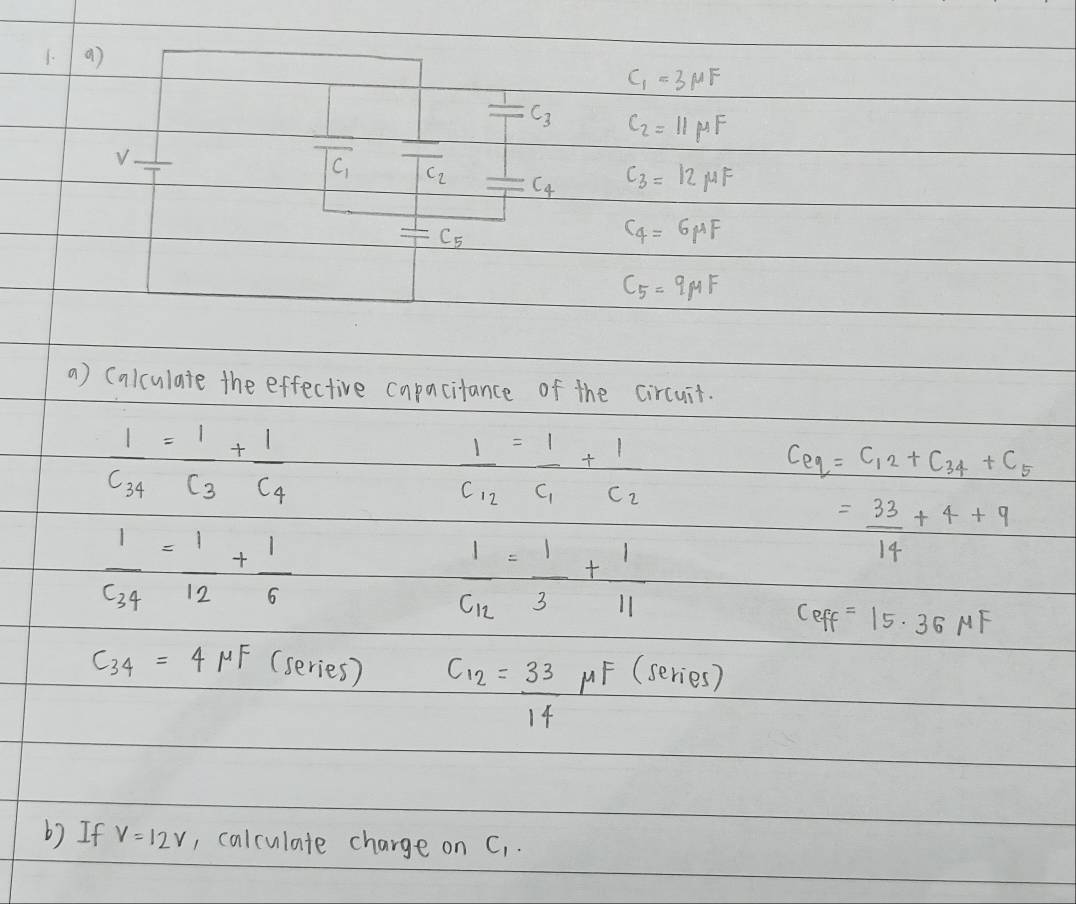 1. a)
C₁ = 3 μF
C₃
C₂ = 11 μF
V
C₁
C₂
C₄
C₃ = 12 μF
C₄ = 6 μF
C₅
C₅ = 9 μF
a) Calculate the effective capacitance of the circuit.
1/C₃₄ = 1/C₃ + 1/C₄
1/C₃₄ = 1/12 + 1/6
C₃₄ = 4 μF (series)
1/C₁₂ = 1/C₁ + 1/C₂
1/C₁₂ = 1/3 + 1/11
C₁₂ = 33/14 μF (series)
Ceq = C₁₂ + C₃₄ + C₅
= 33/14 + 4 + 9
Ceff = 15.36 μF
b) If V = 12V, calculate charge on C₁.